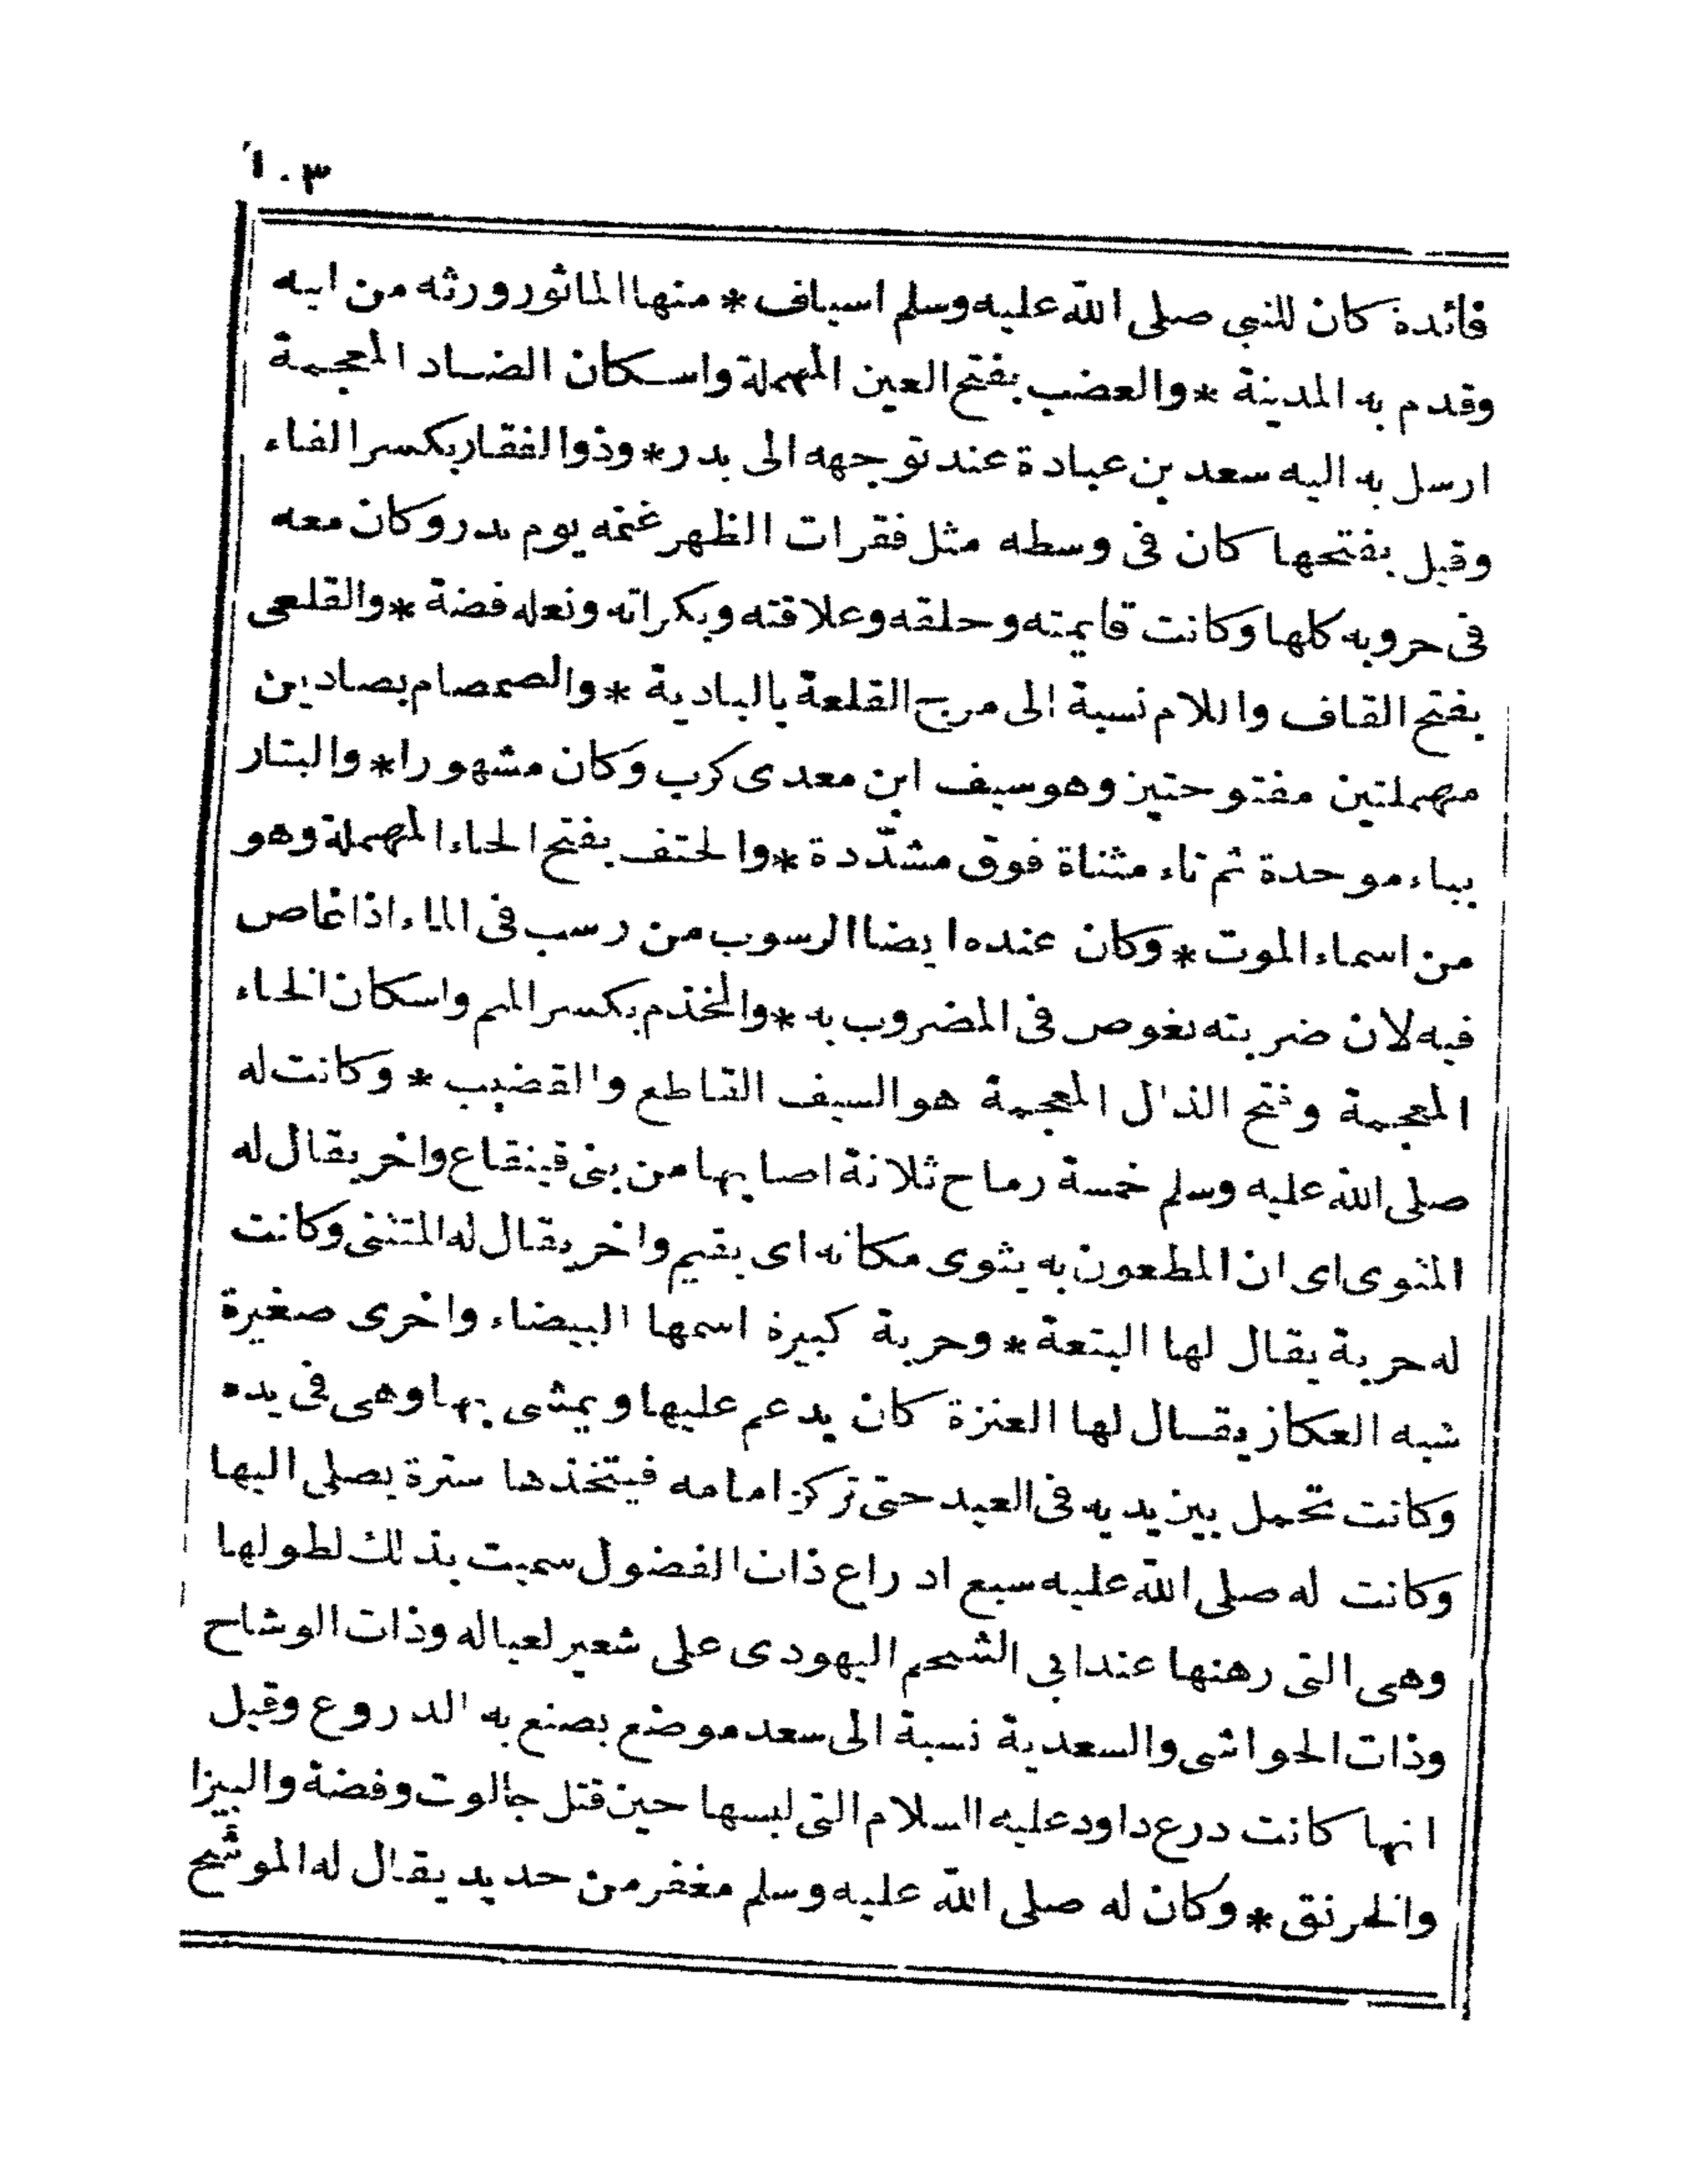 ١٠٣
فائدة كان للنبى صلى الله عليه وسلم اسياف * منها الماثور ورثه من ابيه
وقدم به المدينة * والعضب بفتح العين المهملة واسكان الضاد المعجمة
ارسل به اليه سعد بن عبادة عند توجهه الى بدر * وذوالفقار بكسر الفاء
وقيل بفتحها كان فى وسطه مثل فقرات الظهر غنمه يوم بدر وكان معه
فى حروبه كلها وكانت قايمته وحلقه وعلاقته وبكراته ونعله فضة * والقلعى
بفتح القاف واللام نسبة الى مرج القلعة بالبادية * والصمصام بصادين
مهملتين مفتوحتين وهو سيف ابن معدى كرب وكان مشهورا * والبتار
بباء موحدة ثم تاء مثناة فوق مشدّدة * والحتف بفتح الحاء المهملة وهو
من اسماء الموت * وكان عنده ايضا الرسوب من رسب فى الماء اذا غاص
فيه لان ضربته تغوص فى المضروب به * والمخذم بكسر الميم واسكان الخاء
المعجمة وفتح الذال المعجمة هو السيف القاطع والقضيب * وكانت له
صلى الله عليه وسلم خمسة رماح ثلاثة اصابها من بنى قينقاع واخر يقال له
المثوى اى ان المطعون به يثوى مكانه اى يقيم واخر يقال له المتثنى وكانت
له حربة يقال لها البتعة * وحربة كبيرة اسمها البيضاء واخرى صغيرة
شبه العكاز يقال لها العنزة كان يدعم عليها ويمشى بها وهى فى يده
وكانت تحمل بين يديه فى العيد حتى تركز امامه فيتخذها سترة يصلى اليها
وكانت له صلى الله عليه سبع ادراع ذات الفضول سميت بذلك لطولها
وهى التى رهنها عند ابى الشحم اليهودى على شعير لعياله وذات الوشاح
وذات الحواشى والسعدية نسبة الى سعد موضع يصنع به الدروع وقيل
انها كانت درع داود عليه السلام التى لبسها حين قتل جالوت وفضة والبيزا
والخرنق * وكان له صلى الله عليه وسلم مغفر من حديد يقال له الموشّح